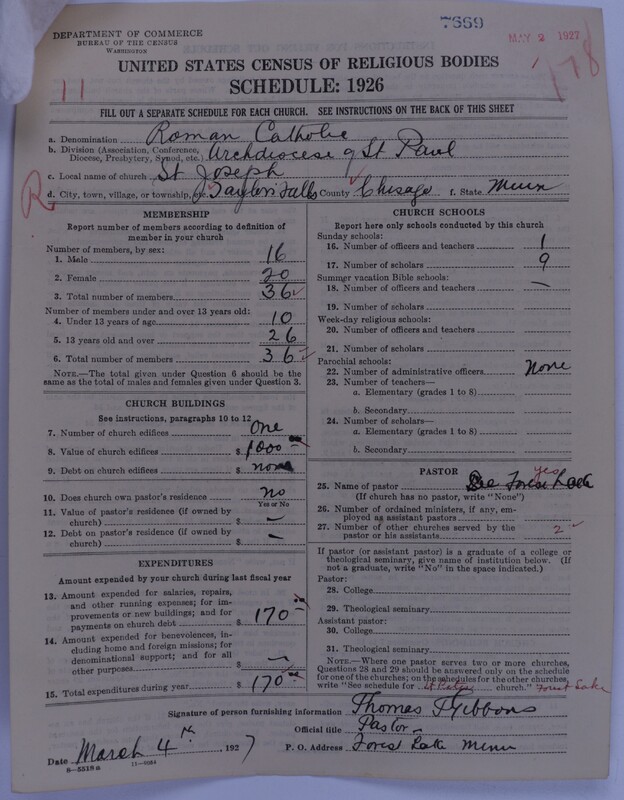 7669
DEPARTMENT OF COMMERCE
BUREAU OF THE CENSUS
WASHINGTON
MAY 2 1927
178
11
UNITED STATES CENSUS OF RELIGIOUS BODIES
SCHEDULE: 1926
FILL OUT A SEPARATE SCHEDULE FOR EACH CHURCH. SEE INSTRUCTIONS ON THE BACK OF THIS SHEET
a. Denomination Roman Catholic
b. Division (Association, Conference, Diocese, Presbytery, Synod, etc.) Archdiocese of St Paul
c. Local name of church St Joseph
d. City, town, village, or township, etc. Taylors Falls County Chisago f. State Minn
R
MEMBERSHIP
Report number of members according to definition of
member in your church
Number of members, by sex:
1. Male 16
2. Female 20
3. Total number of members 36
Number of members under and over 13 years old:
4. Under 13 years of age 10
5. 13 years old and over 26
6. Total number of members 36
NOTE.—The total given under Question 6 should be
the same as the total of males and females given under Question 3.
CHURCH BUILDINGS
See instructions, paragraphs 10 to 12
7. Number of church edifices One
8. Value of church edifices $ 1000
9. Debt on church edifices $ none
10. Does church own pastor's residence No
Yes or No
11. Value of pastor's residence (if owned by
church) $ —
12. Debt on pastor's residence (if owned by
church) $ —
EXPENDITURES
Amount expended by your church during last fiscal year
13. Amount expended for salaries, repairs,
and other running expenses; for im-
provements or new buildings; and for
payments on church debt $ 170
14. Amount expended for benevolences, in-
cluding home and foreign missions; for
denominational support; and for all
other purposes $ —
15. Total expenditures during year $ 170
CHURCH SCHOOLS
Report here only schools conducted by this church
Sunday schools:
16. Number of officers and teachers 1
17. Number of scholars 9
Summer vacation Bible schools:
18. Number of officers and teachers —
19. Number of scholars
Week-day religious schools:
20. Number of officers and teachers
21. Number of scholars
Parochial schools:
22. Number of administrative officers None
23. Number of teachers—
a. Elementary (grades 1 to 8)
b. Secondary
24. Number of scholars—
a. Elementary (grades 1 to 8)
b. Secondary
PASTOR
yes
25. Name of pastor See Forest Lake
(If church has no pastor, write "None")
26. Number of ordained ministers, if any, em-
ployed as assistant pastors
27. Number of other churches served by the
pastor or his assistants 2
If pastor (or assistant pastor) is a graduate of a college or
theological seminary, give name of institution below. (If
not a graduate, write "No" in the space indicated.)
Pastor:
28. College
29. Theological seminary
Assistant pastor:
30. College
31. Theological seminary
NOTE.—Where one pastor serves two or more churches,
Questions 28 and 29 should be answered only on the schedule
for one of the churches; on the schedules for the other churches,
write "See schedule for St Peters church." Forest Lake
Signature of person furnishing information Thomas F Gibbons
Official title Pastor
Date March 4th 1927
P. O. Address Forest Lake Minn
8-5518a 11-9084